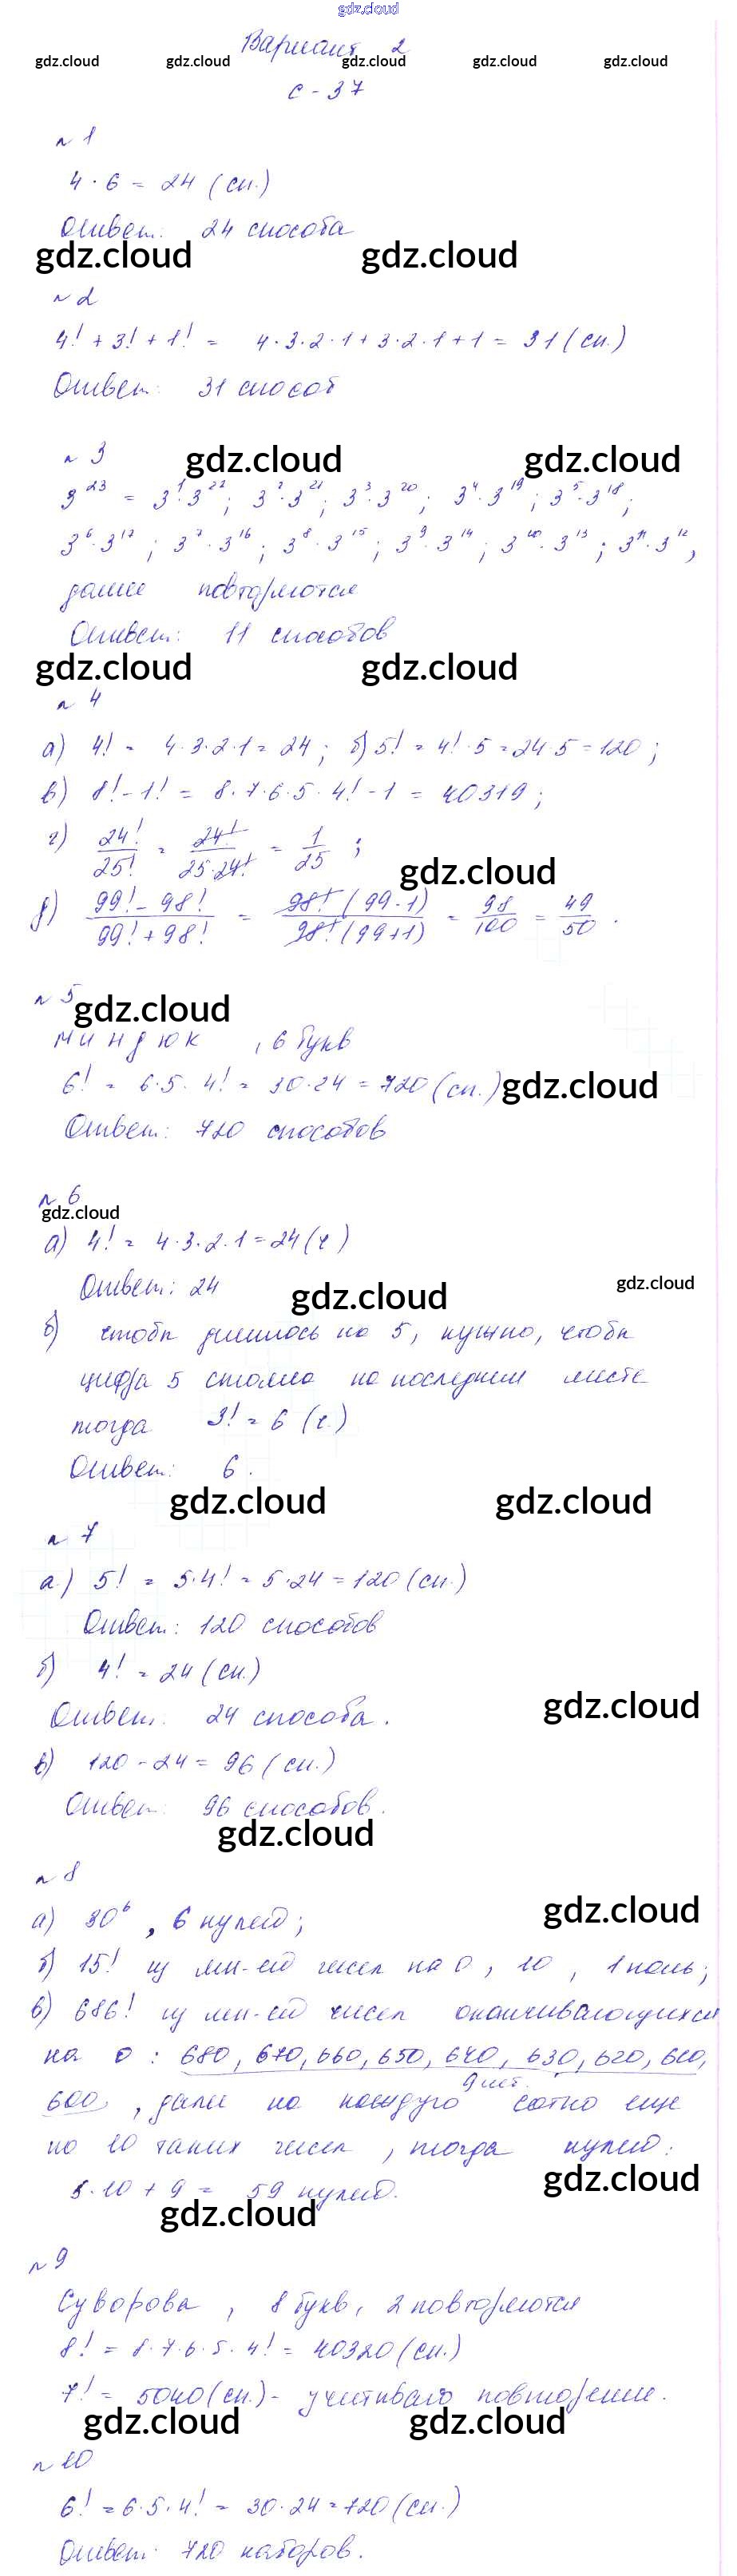 gdz.cloud
Вариант 2
gdz.cloud gdz.cloud gdz.cloud gdz.cloud gdz.cloud
С-37
№1
4 · 6 = 24 (сп.)
Ответ: 24 способа
gdz.cloud gdz.cloud
№2
4! + 3! + 1! = 4·3·2·1+3·2·1+1 = 31 (сп.)
Ответ: 31 способ
№3 gdz.cloud gdz.cloud
3²³ = 3¹·3²²; 3²·3²¹; 3³·3²⁰; 3⁴·3¹⁹; 3⁵·3¹⁸;
3⁶·3¹⁷; 3⁷·3¹⁶; 3⁸·3¹⁵; 3⁹·3¹⁴; 3¹⁰·3¹³; 3¹¹·3¹²,
далее повторяются
Ответ: 11 способов
gdz.cloud gdz.cloud
№4
а) 4! = 4·3·2·1 = 24; б) 5! = 4!·5 = 24·5 = 120;
в) 8! - 1! = 8·7·6·5·4! - 1 = 40319;
г) 24!/25! = 24!/25·24! = 1/25;
gdz.cloud
д) 99! - 98!/99! + 98! = 98!(99-1)/98!(99+1) = 98/100 = 49/50.
№5 gdz.cloud
миндюк, 6 букв
6! = 6·5·4! = 30·24 = 720 (сп.) gdz.cloud
Ответ: 720 способов
№6
gdz.cloud
а) 4! = 4·3·2·1 = 24 (ч)
Ответ: 24 gdz.cloud gdz.cloud
б) чтобы делилось на 5, нужно, чтобы
цифра 5 стояла на последнем месте
тогда 3! = 6 (ч.)
Ответ: 6.
gdz.cloud gdz.cloud
№7
а) 5! = 5·4! = 5·24 = 120 (сп.)
Ответ: 120 способов
б) 4! = 24 (сп.)
gdz.cloud
Ответ: 24 способа.
в) 120 - 24 = 96 (сп.)
Ответ: 96 способов.
gdz.cloud
№8
gdz.cloud
а) 30⁶, 6 нулей;
б) 15! из мн-ей чисел на 0, 10, 1 ноль;
в) 686! из мн-ей чисел оканчивающихся
на 0: 680, 670, 660, 650, 640, 630, 620, 610,
9 шт.
600, далее на каждую сотню еще
по 10 таких чисел, тогда нулей:
gdz.cloud
5·10 + 9 = 59 нулей.
gdz.cloud
№9
Суворова, 8 букв, 2 повторяются
8! = 8·7·6·5·4! = 40320 (сп.)
7! = 5040 (сп.) - учитываю повторение.
gdz.cloud gdz.cloud
№10
6! = 6·5·4! = 30·24 = 720 (сп.)
Ответ: 720 наборов.